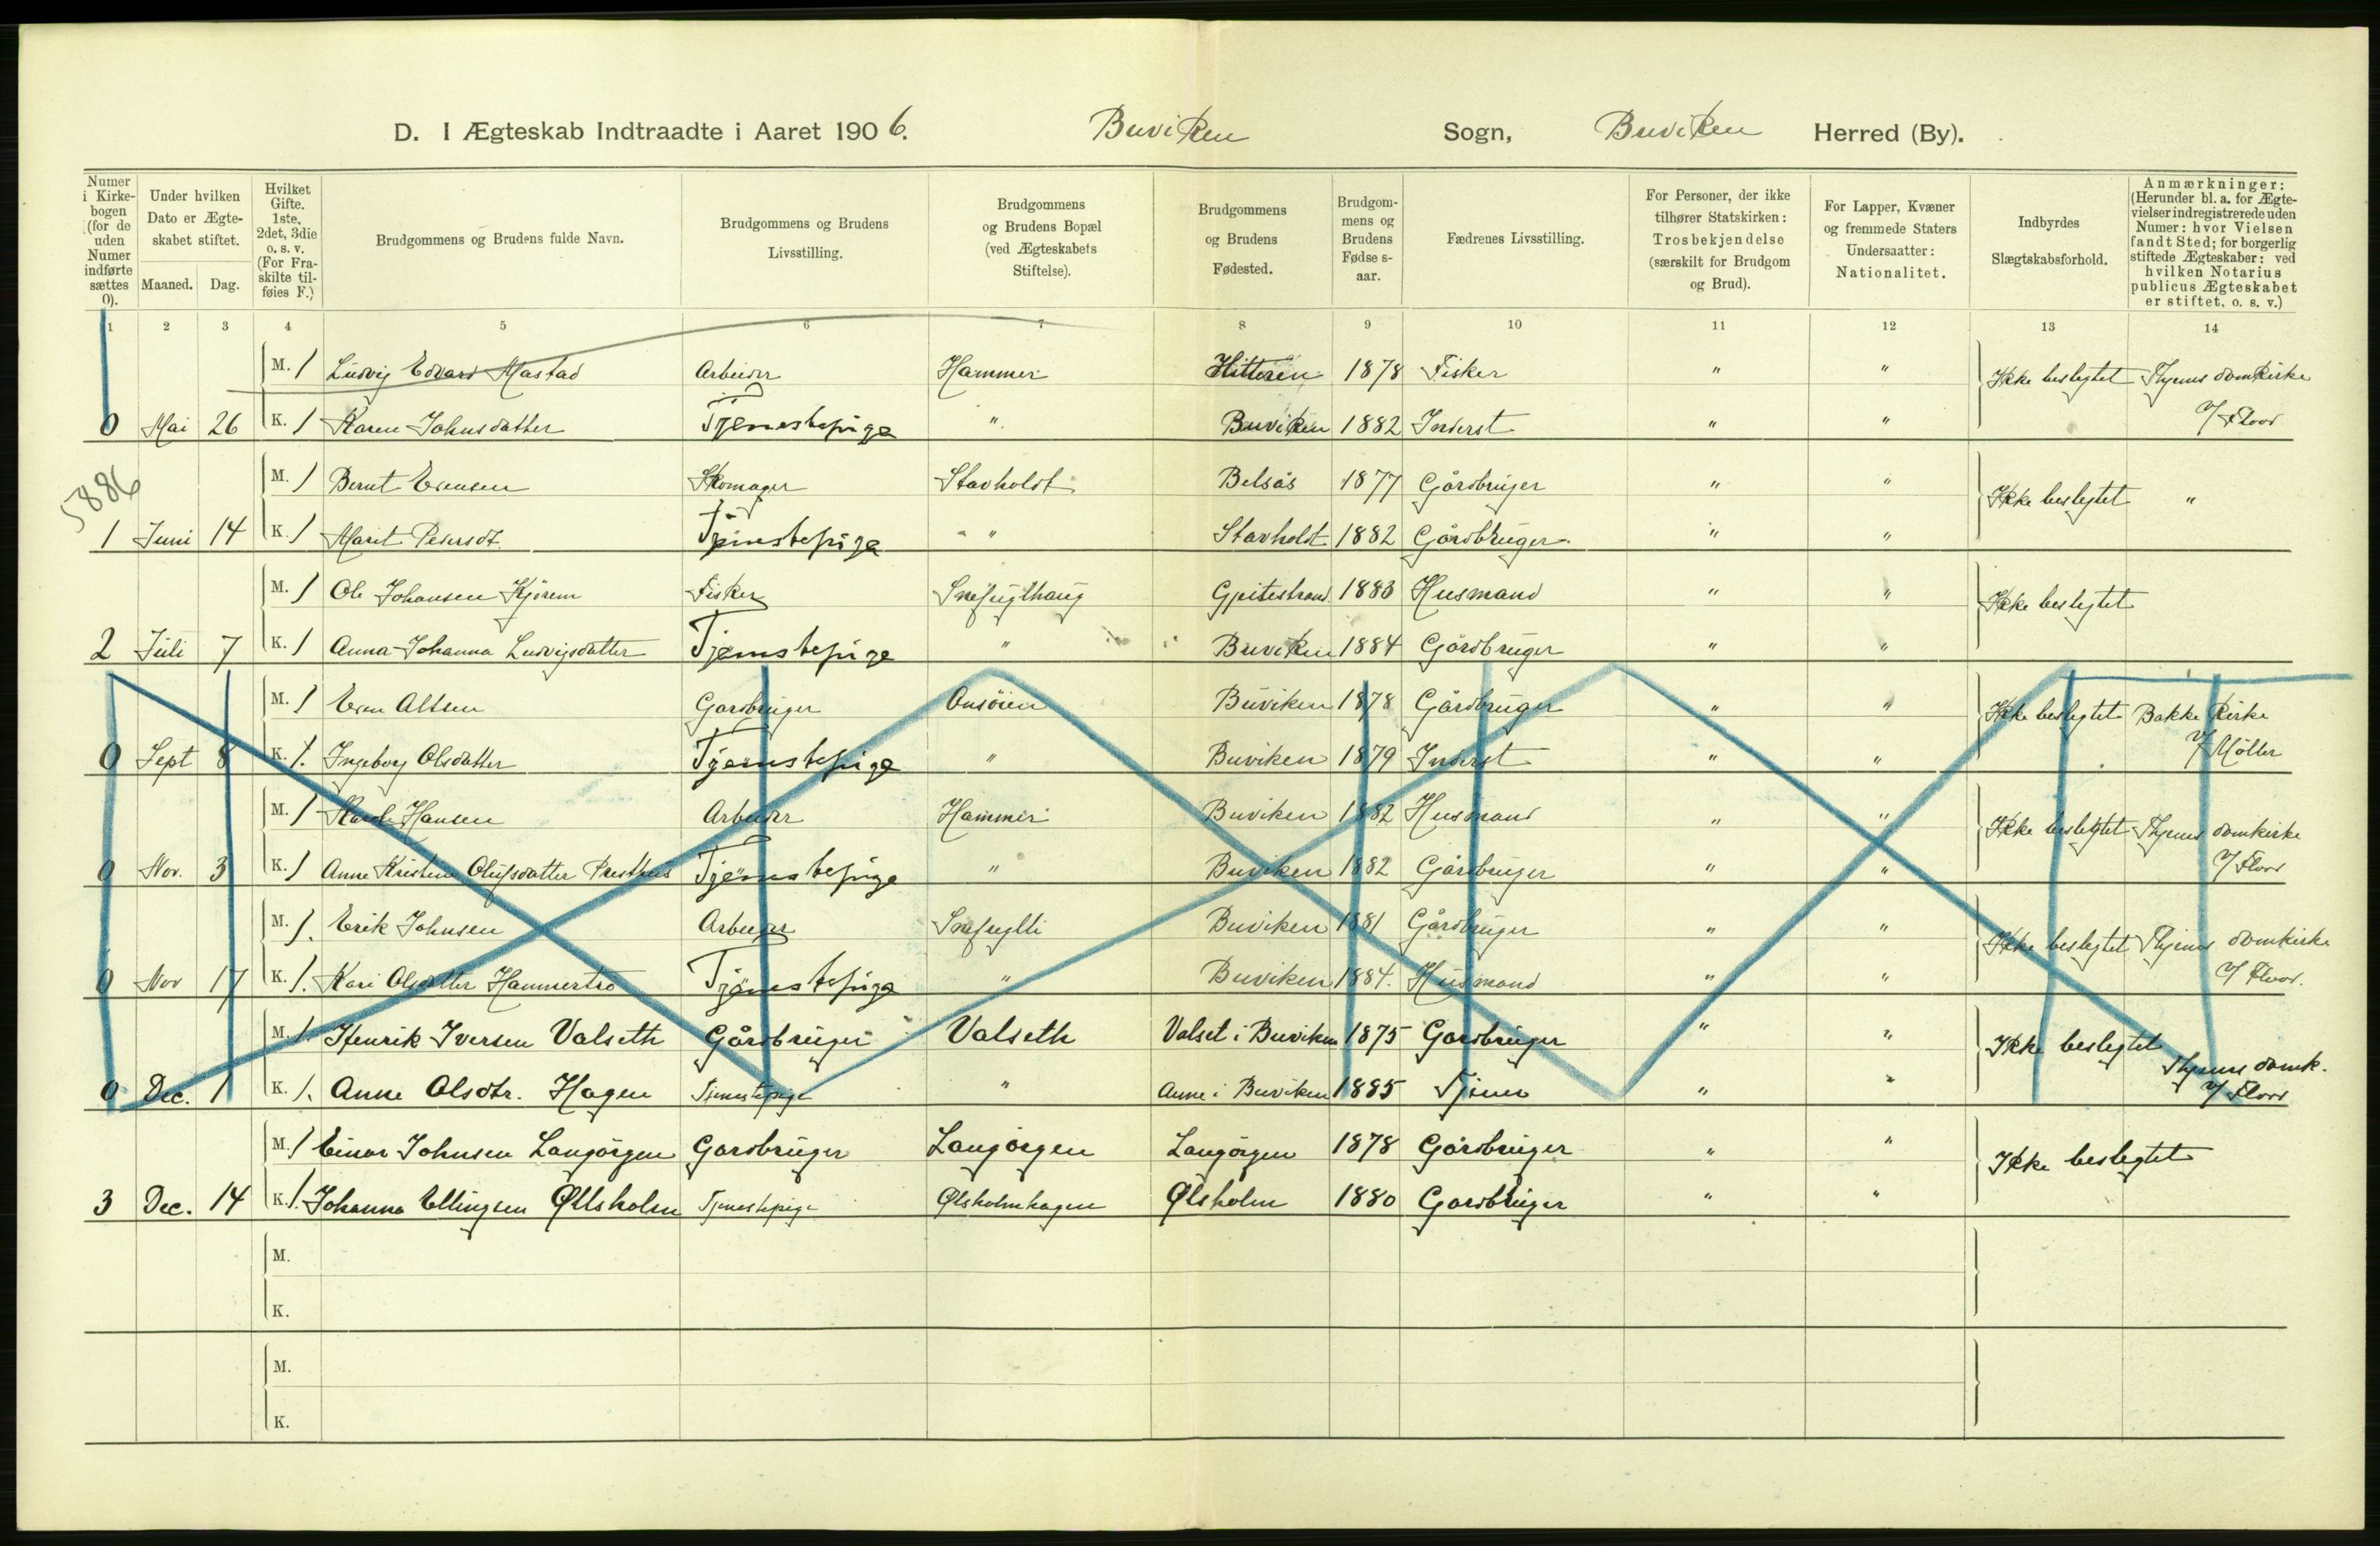 D. I Ægteskab Indtraadte i Aaret 1906. Buviken Sogn, Buviken Herred (By).
Numer i Kirkebogen (for de uden Numer indførte sættes 0).
Under hvilken Dato er Ægteskabet stiftet.
Maaned. Dag.
Hvilket Gifte. 1ste, 2det, 3die o. s. v. (For Fraskilte tilføies F.)
Brudgommens og Brudens fulde Navn.
Brudgommens og Brudens Livsstilling.
Brudgommens og Brudens Bopæl (ved Ægteskabets Stiftelse).
Brudgommens og Brudens Fødested.
Brudgommens og Brudens Fødselsaar.
Fædrenes Livsstilling.
For Personer, der ikke tilhører Statskirken: Trosbekjendelse (særskilt for Brudgom og Brud).
For Lapper, Kvæner og fremmede Staters Undersaatter: Nationalitet.
Indbyrdes Slægtskabsforhold.
Anmærkninger: (Herunder bl. a. for Ægtevielser indregistrerede uden Numer: hvor Vielsen fandt Sted; for borgerlig stiftede Ægteskaber: ved hvilken Notarius publicus Ægteskabet er stiftet, o. s. v.)
1 2 3 4 5 6 7 8 9 10 11 12 13 14
M. 1 Ludvig Edvard Mastad Arbeider Hammer Hitteren 1878 Fisker " " Ikke beslegtet Thjems domkirke
0 Mai 26 K. 1 Karen Johnsdatter Tjenestepige " Buviken 1882 Inderst " " v/ Floor
5886
M. 1 Bernt Evensen Skomager Stavholdt Belsås 1877 Gårdbruger " " Ikke beslegtet "
1 Juni 14 K. 1 Marit Pedersdt. Tjenestepige " Stavholdt 1882 Gårdbruger " "
M. 1 Ole Johansen Kjörem Fisker Snefuglhaug 1883 Husmand " " Ikke beslegtet
2 Juli 7 K. 1 Anna Johanna Ludvigsdatter Tjenestepige " Buviken 1884 Gårdbruger " "
M. 1 Even Altsen Gardbruger Onsöien Buviken 1878 Gårdbruger " " Ikke beslegtet Bakke Kirke
0 Sept 8 K. 1. Ingeborg Olsdatter Tjenestepige " Buviken 1879 Inderst " " v/ Möller
M. 1 Hansen Arbeider Hammer Buviken 1882 Husmand " " Ikke beslegtet Thjems domkirke
0 Nov. 3 K. 1 Anne Kristine Olufsdatter Presthus Tjenestepige " Buviken 1882 Gårdbruger " " v/ Floor
M. 1. Erik Johnsen Arbeider Snefugli Buviken 1881 Gårdbruger " " Ikke beslegtet Thjems domkirke
0 Nov 17 K. 1. Kari Olsdatter Hammertrö Tjenestepige " Buviken 1884. Husmand " " v/ Floor.
M. 1. Henrik Iversen Valseth Gårdbruger Valseth Valset i Buviken 1875 Gardbruger " " Ikke beslegtet
Thjems domk.
0 Dec. 1 K. 1. Anne Olsdtr. Hagen Tjenestepige " Anne i Buviken 1885 Tjener " " v/ Floor
M. 1 Einar Johnsen Langörgen Gardbruger Langörgen Langörgen 1878 Gårdbruger " " Ikke beslegtet
3 Dec. 14 K. 1. Johanna Ellingsen Ölsholm Tjenestepige Ølsholmhagen Ølsholm 1880 Gardbruger " "
M.
K.
M.
K.